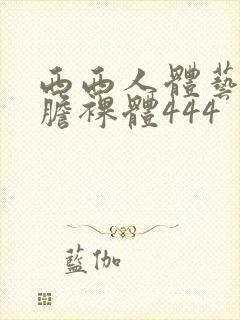 西西人體藝
膽裸體444
藍伽